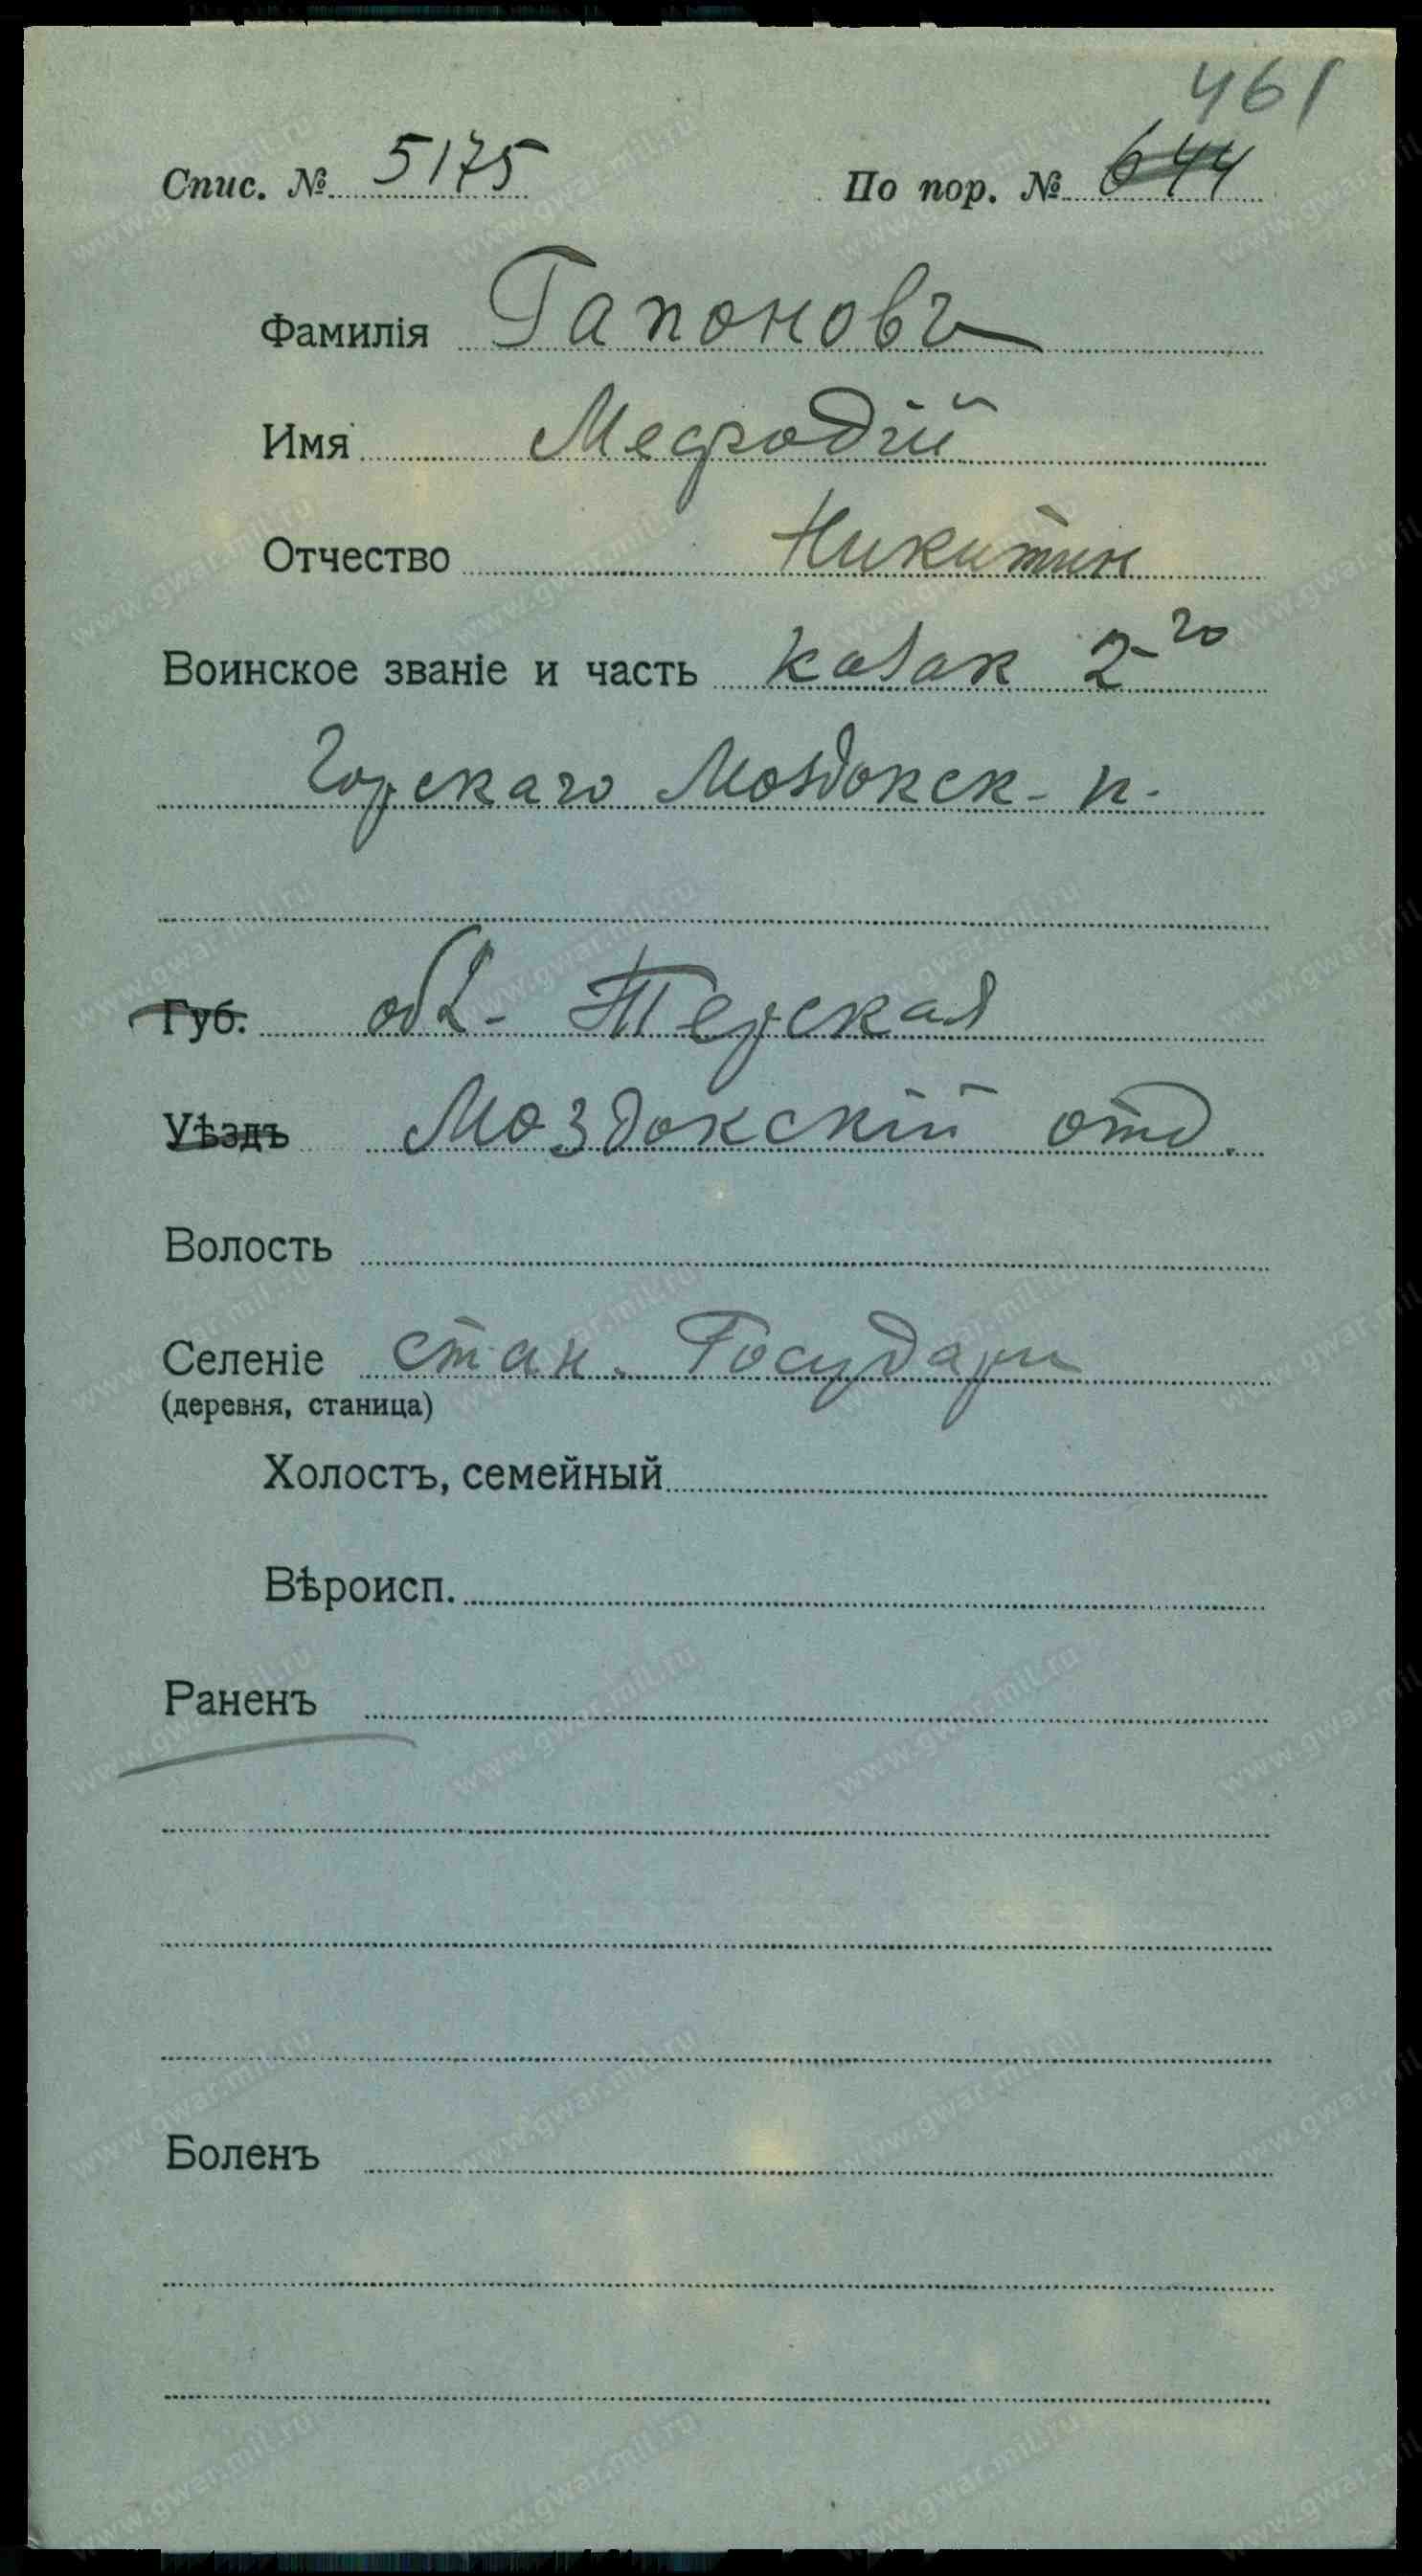 461
Спис. № 5175 По пор. № 644
Фамилія Гапоновъ
Имя Мефодій
Отчество Никитин
Воинское званіе и часть казак 2-го
Горскаго Моздокск. п.
Губ. обл. Терская
Уѣздъ Моздокскій отд.
Волость
Селеніе стан. Государи
(деревня, станица)
Холостъ, семейный
Вѣроисп.
Раненъ
Боленъ
www.gwar.mil.ru